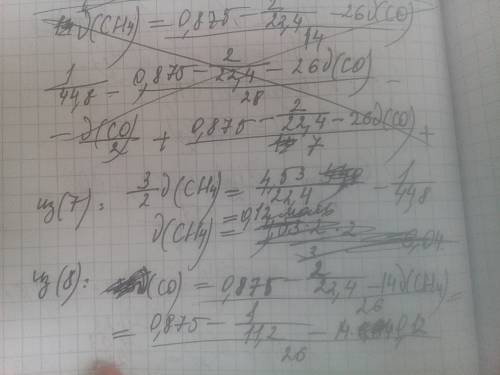 ϑ(CH4) = (0,875 - 2/22,4 - 26ϑ(CO))/14
1/44,8 - (0,875 - 2/22,4 - 26ϑ(CO))/28 =
= ϑ(CO)/2 + (0,875 - 2/22,4 - 26ϑ(CO))/7 +
из(7): 3/2 ϑ(CH4) = 4,53/22,4 - 1/44,8
ϑ(CH4) = 0,12 моль
из(8): ϑ(CO) = (0,875 - 2/22,4 - 14ϑ(CH4))/26 =
= (0,875 - 1/11,2 - 14 · 0,12)/26